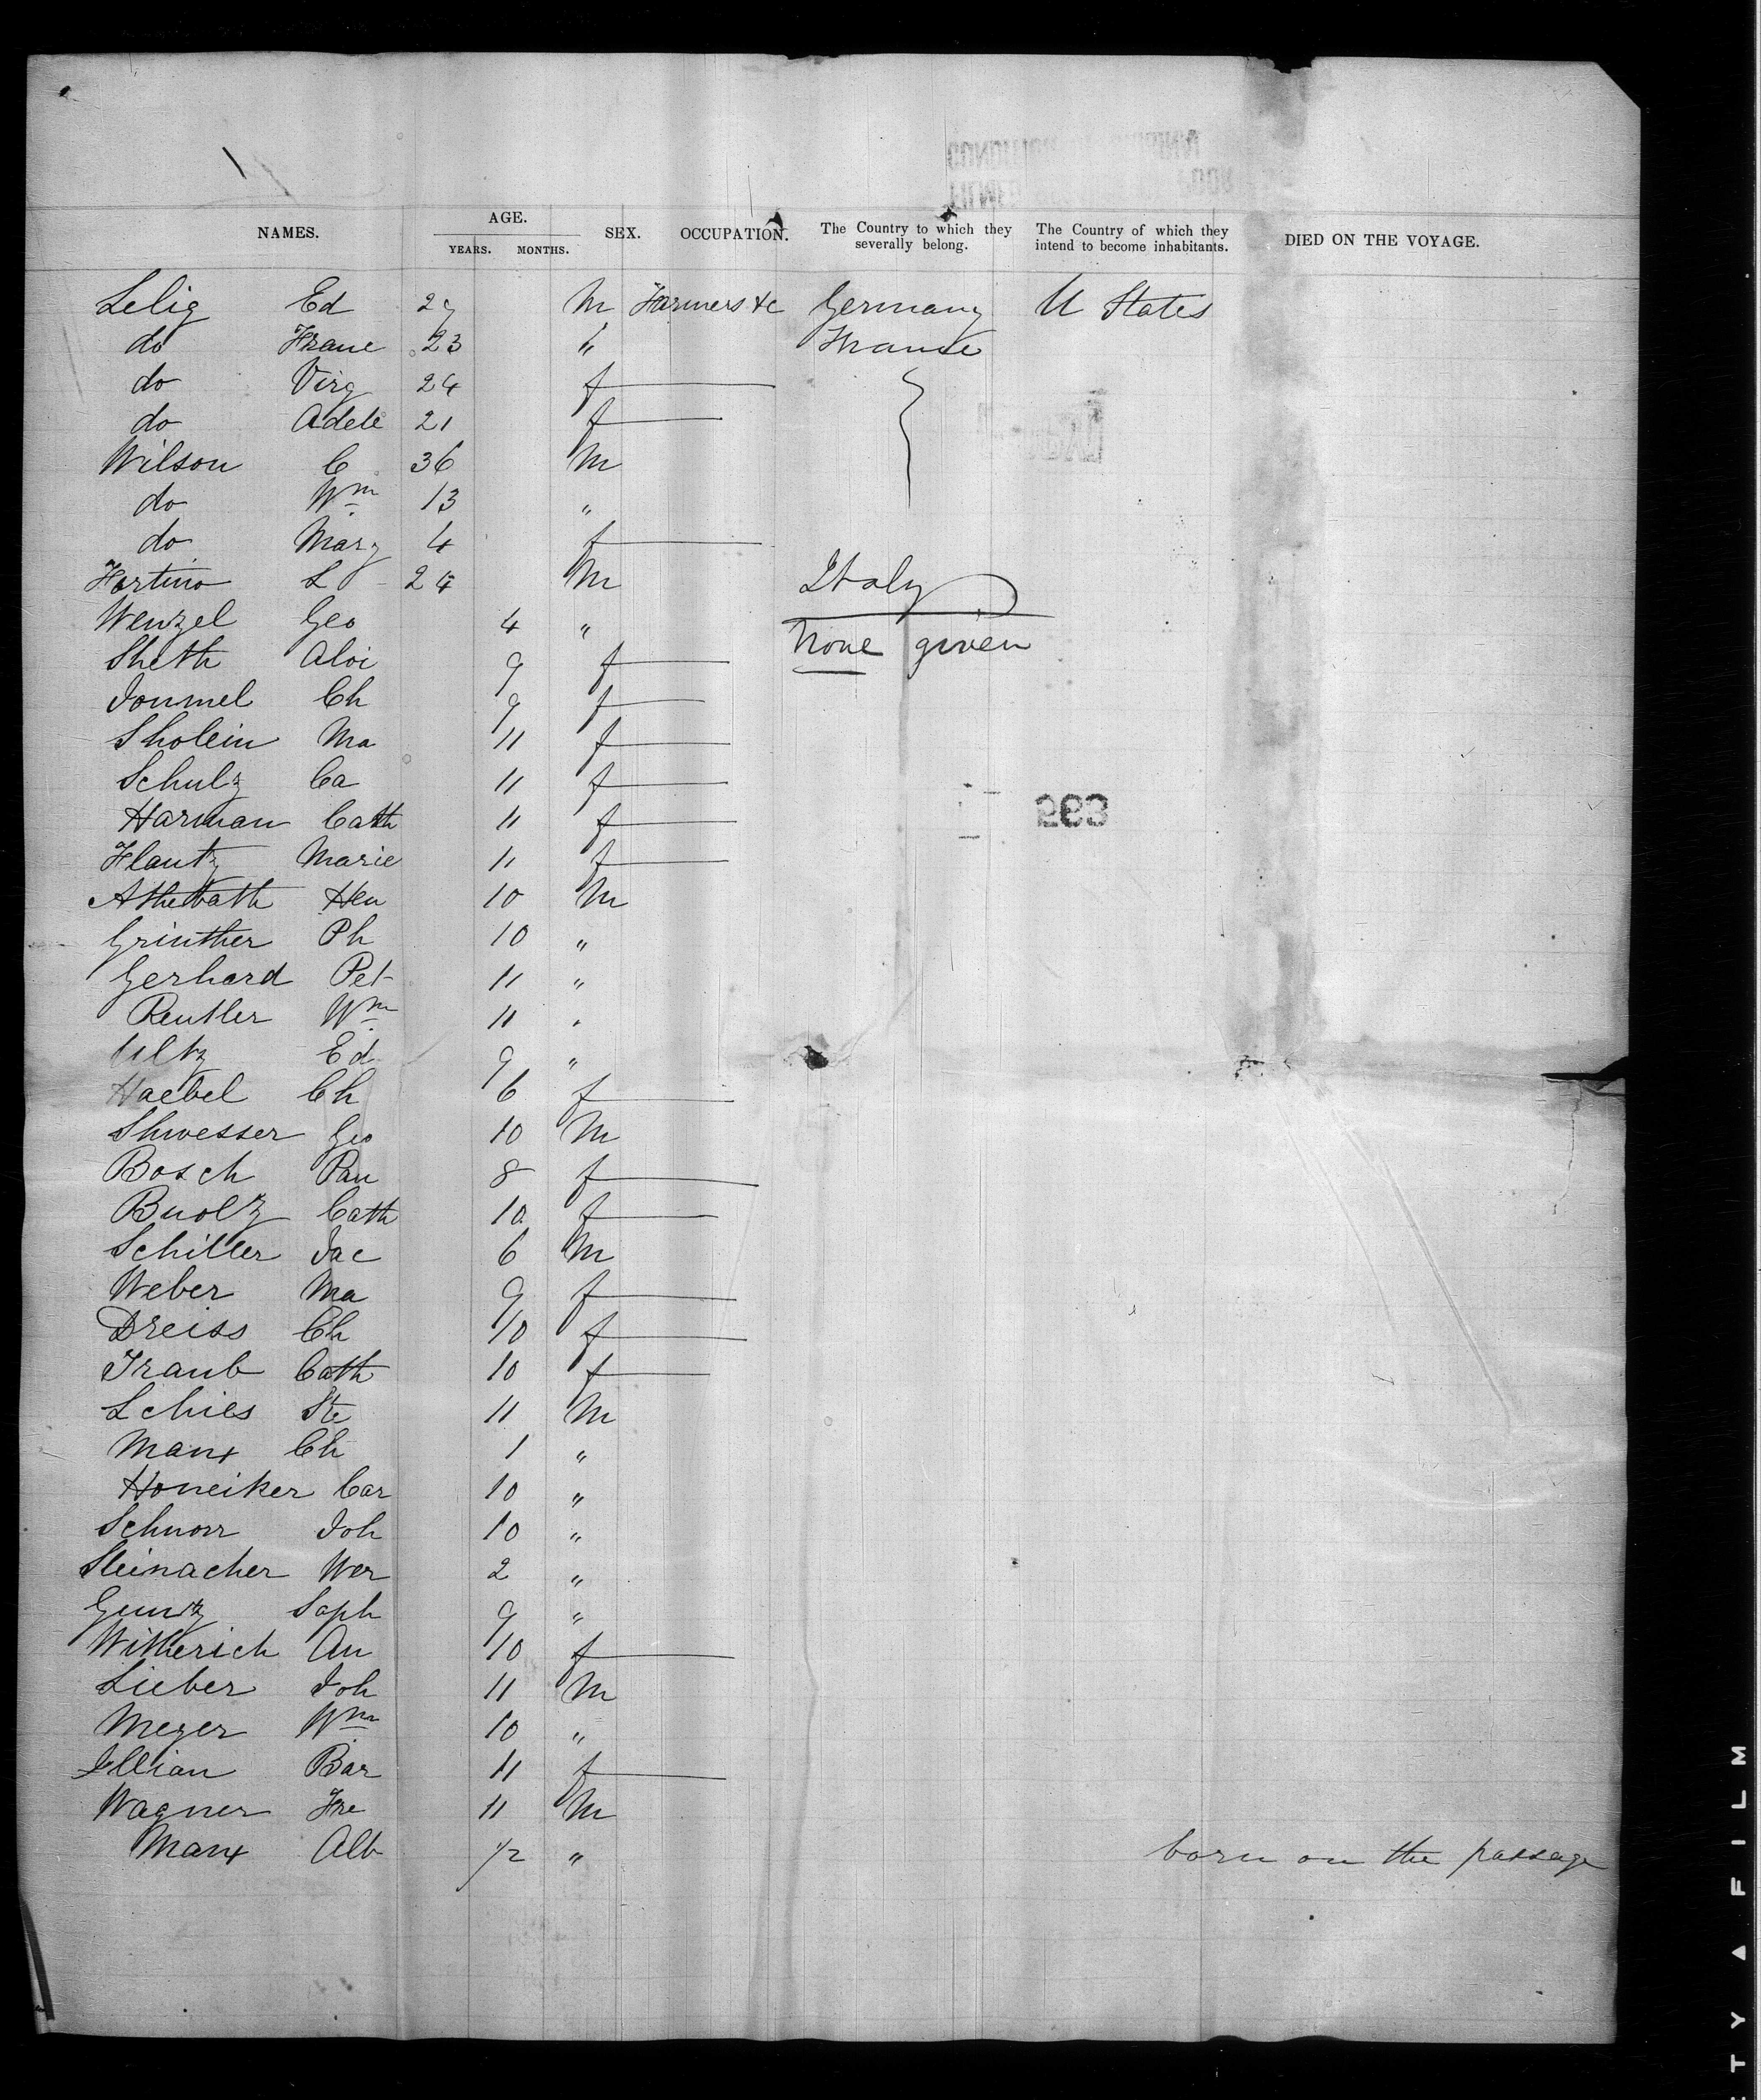 AGE.
NAMES. YEARS. MONTHS. SEX. OCCUPATION. The Country to which they severally belong. The Country of which they intend to become inhabitants. DIED ON THE VOYAGE.
Selig Ed 29 M Farmers &c Germany U States
do Franc 23 " France
do Virg 24 f
do Adele 21 f
Wilson C 36 M
do Wm 13 "
do Mary 4 f
Fortino L 24 M Italy
Wenzel Geo 4 " None given
Sheth Aloi 9 f
Jommel Ch 9 f
Sholein Ma 11 f
Schulz Ca 11 f
Harman Cath 11 f
Flautz Marie 11 f
Hen 10 M
Grinther Ph 10 "
Gerhard Pet 11 "
Reutler Wm 11 "
Ultz Ed 9 "
Haebel Ch 6 f
Shwesser Geo 10 M
Bosch Pau 8 f
Buoltz Cath 10 f
Schiller Jac 6 M
Weber Ma 9 f
Dreiss Ch 10 f
Traub Cath 10 f
Schies Ste 11 M
Marx Ch 1 "
Honeiker Car 10 "
Schnorr Joh 10 "
Steinacher Wer 2 "
Guntz Soph 9 "
Witherich An 10 f
Lieber Joh 11 M
Meyer Wm 10 "
Illian Bar 11 f
Wagner Fre 11 M
Marx Alb 1/2 " born on the passage
263
TY ▲ FILM